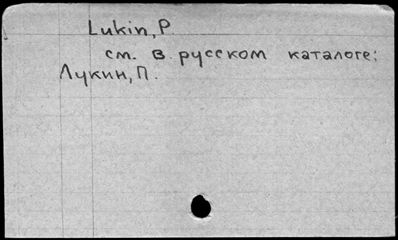 Lukin, P
см. в русском каталоге:
Лукин, П.